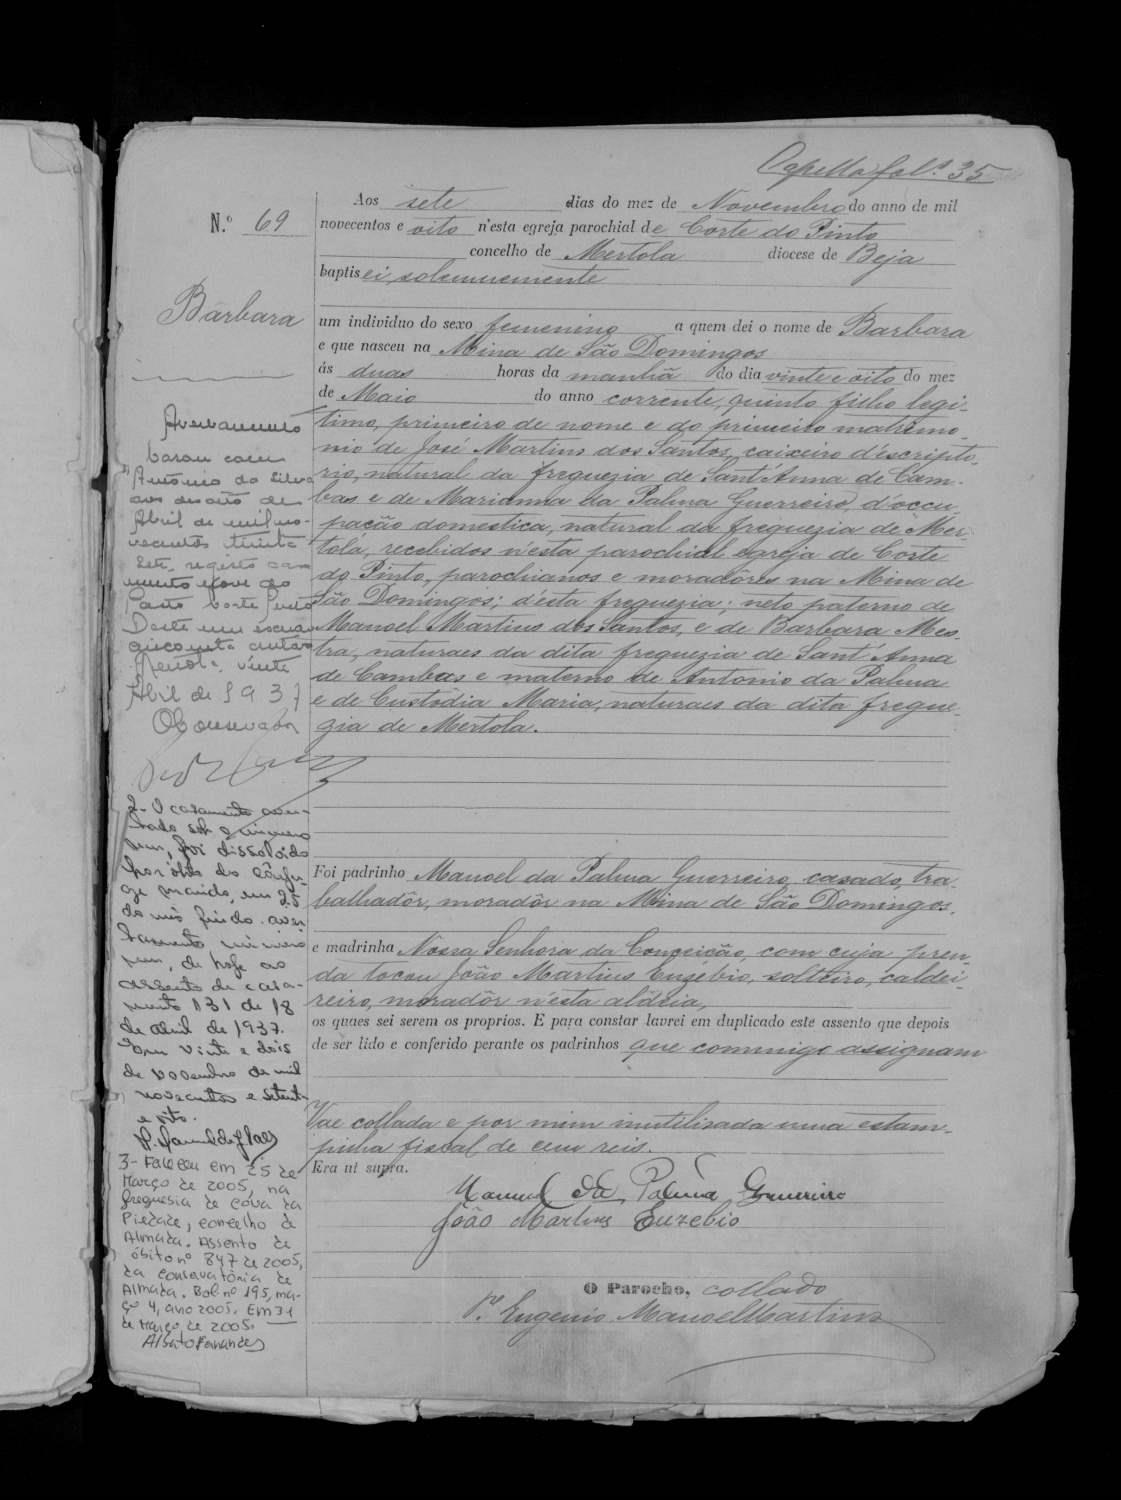 Capella fol.s 35
N.º 69
Barbara
Aos sete dias do mez de Novembro do anno de mil
novecentos e oito n'esta egreja parochial de Corte do Pinto
concelho de Mertola diocese de Beja
baptisei solemnemente
um individuo do sexo femenino a quem dei o nome de Barbara
e que nasceu na Mina de São Domingos
ás duas horas da manhã do dia vinte e oito do mez
de Maio do anno corrente, quinto filho legi-
timo, primeiro de nome e do primeiro matrimo-
nio de José Martins dos Santos, caixeiro d'escripto-
rio, natural da freguezia de Sant'Anna de Cam-
bas e de Marianna da Palma Guerreiro, d'occu-
pação domestica, natural da freguezia de Mer-
tola, recebidos n'esta parochial egreja de Corte
do Pinto, parochianos e moradôres na Mina de
São Domingos; d'esta freguezia; neto paterno de
Manoel Martins dos Santos, e de Barbara Mes-
tra, naturaes da dita freguezia de Sant'Anna
de Cambas e materno de Antonio da Palma
e de Custodia Maria, naturaes da dita fregue-
zia de Mertola.
Foi padrinho Manoel da Palma Guerreiro, casado, tra-
balhadôr, moradôr na Mina de São Domingos,
e madrinha Nossa Senhora da Conceição, com cuja pren-
da tocou João Martins Euzébio, solteiro, caldei-
reiro, moradôr n'esta aldeia,
os quaes sei serem os proprios. E para constar lavrei em duplicado este assento que depois
de ser lido e conferido perante os padrinhos que commigo assignam
Vae collada e por mim inutilisada uma estam-
pinha fiscal de cem reis.
Era ut supra.
Manuel da Palma Guerreiro
João Martins Euzebio
O Parocho, collado
P.e Eugenio Manoel Martins
Averbamento
Casou com
António da Silva
aos dezoito de
Abril de mil no-
vecentos trinta
sete, registo casa
mento nove do
Posto Corte Pinto
Mertola, vinte
Abril de 1937
O Conservador
2- O casamento aver-
bado sob o numero
um, foi dissolvido
por óbito do cônju-
ge marido, em 25
do mês findo. aver-
bamento numero
um, de hoje ao
assento de casa-
mento 131 de 18
de abril de 1937.
Em vinte e dois
de novembro de mil
novecentos e setenta
e oito.
3- Faleceu em 25 de
Março de 2005, na
freguesia de Cova da
Piedade, concelho de
Almada. Assento de
óbito nº 847 de 2005,
da conservatória de
Almada. Bol. nº 195, ma-
ço 4, ano 2005. Em 31
de Março de 2005.